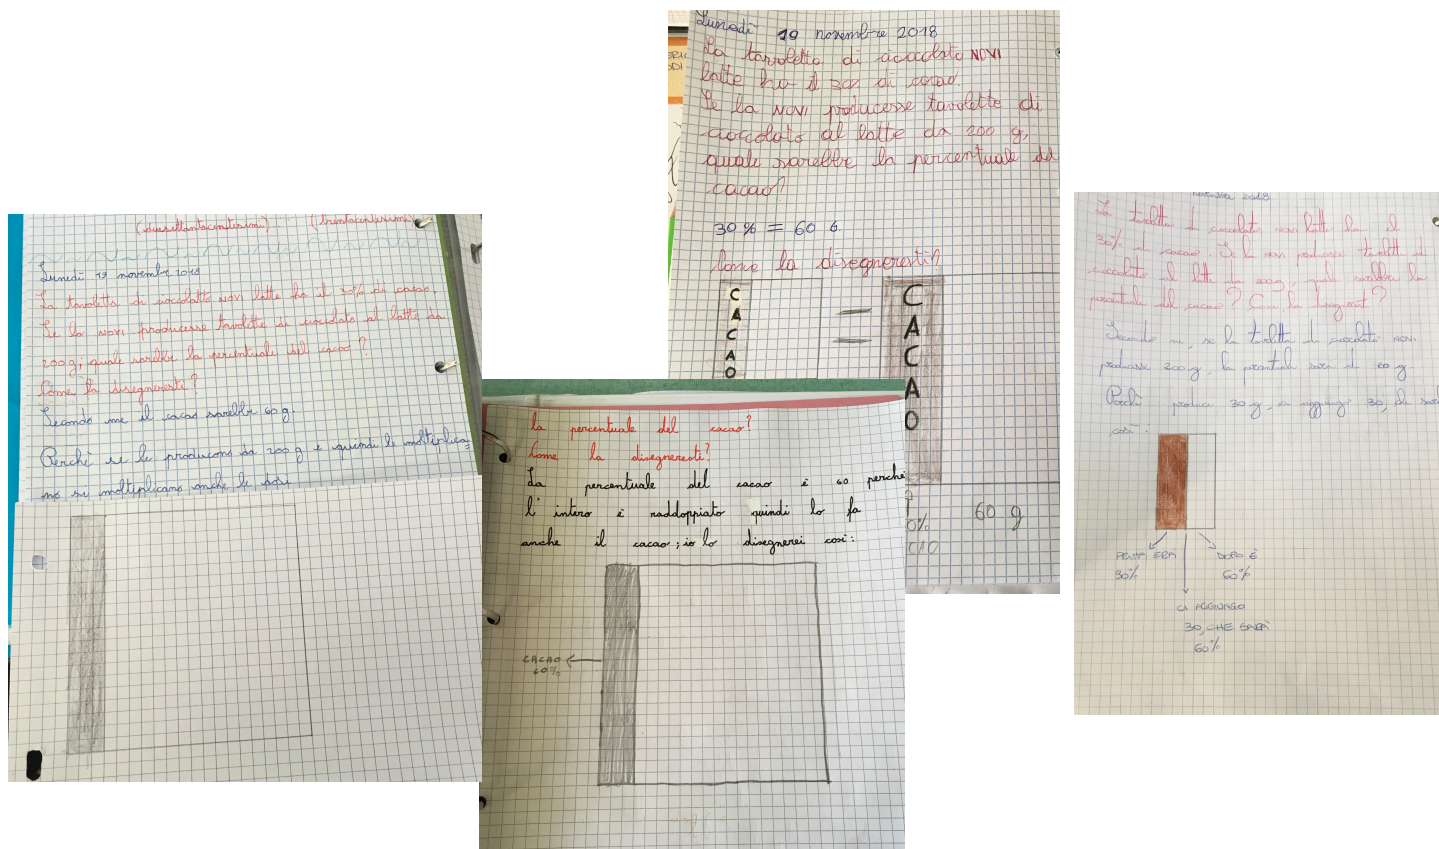 (diciassettantacinquesimi) (trentacentesimi)
Lunedì 19 novembre 2018
La tavoletta di cioccolatto NOVI latte ha il 30% di cacao.
Se la NOVI producesse tavolette di cioccolato al latte da
200 g, quale sarebbe la percentuale del cacao?
Come la disegneresti?
Secondo me il cacao sarebbe 60 g.
Perchè se le producono da 200 g e quindi le moltiplica=
no si moltiplicano anche le dosi
la percentuale del cacao?
Come la disegneresti?
La percentuale del cacao è 60 perchè
l'intero è raddoppiato quindi lo fa
anche il cacao; io lo disegnerei così:
CACAO
60%
Lunedì 19 novembre 2018
La tavoletta di cioccolato NOVI
latte ha il 30% di cacao.
Se la NOVI producesse tavolette di
cioccolato al latte da 200 g,
quale sarebbe la percentuale del
cacao?
30% = 60 G.
Come la disegneresti?
CACAO = CACAO
60 g
novembre 2018
La tavoletta di cioccolato novi latte ha il
30% di cacao. Se la novi producesse tavolette di
cioccolato al latte da 200g, quale sarebbe la
percentuale del cacao? Come la disegneresti?
Secondo me, se la tavoletta di cioccolato NOVI
producesse 200 g, la percentuale sarà di 60 g
Perchè produce 30 g, se aggiungi 30, che sarà
così:
PRIMA ERA
30%
DOPO È
60%
CI AGGIUNGO
30, CHE SARÀ
60%